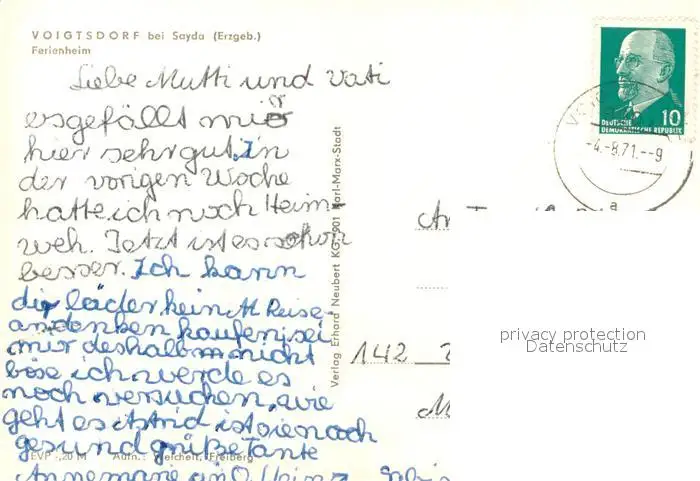 VOIGTSDORF bei Sayda (Erzgeb.)
Ferienheim
Liebe Mutti und Vati
esgefällt mir
hier sehrgut. In
der vorigen Woche
hatte ich noch Heim
weh. Jetzt ist es schon
besser. Ich kann
dir läder kein Reise
andenken kaufen, sei
mir deshalb nicht
böse ich werde es
noch versuchen, wie
geht es Astrid ist sie noch
gesund grüße Tante
Annemarie
EVP -,20 M Aufn.: Reichelt, Freiberg
Verlag Erhard Neubert KG 901 Karl-Marx-Stadt
DEUTSCHE
DEMOKRATISCHE REPUBLIK
10
-4.-8.71.--9
a
142
privacy protection
Datenschutz